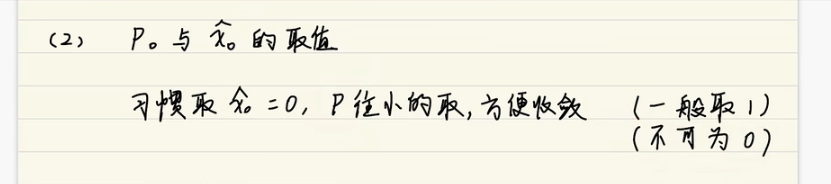 (2) P₀与x̂₀的取值
习惯取x̂₀=0, P往小的取,方便收敛 (一般取1)
(不可为0)